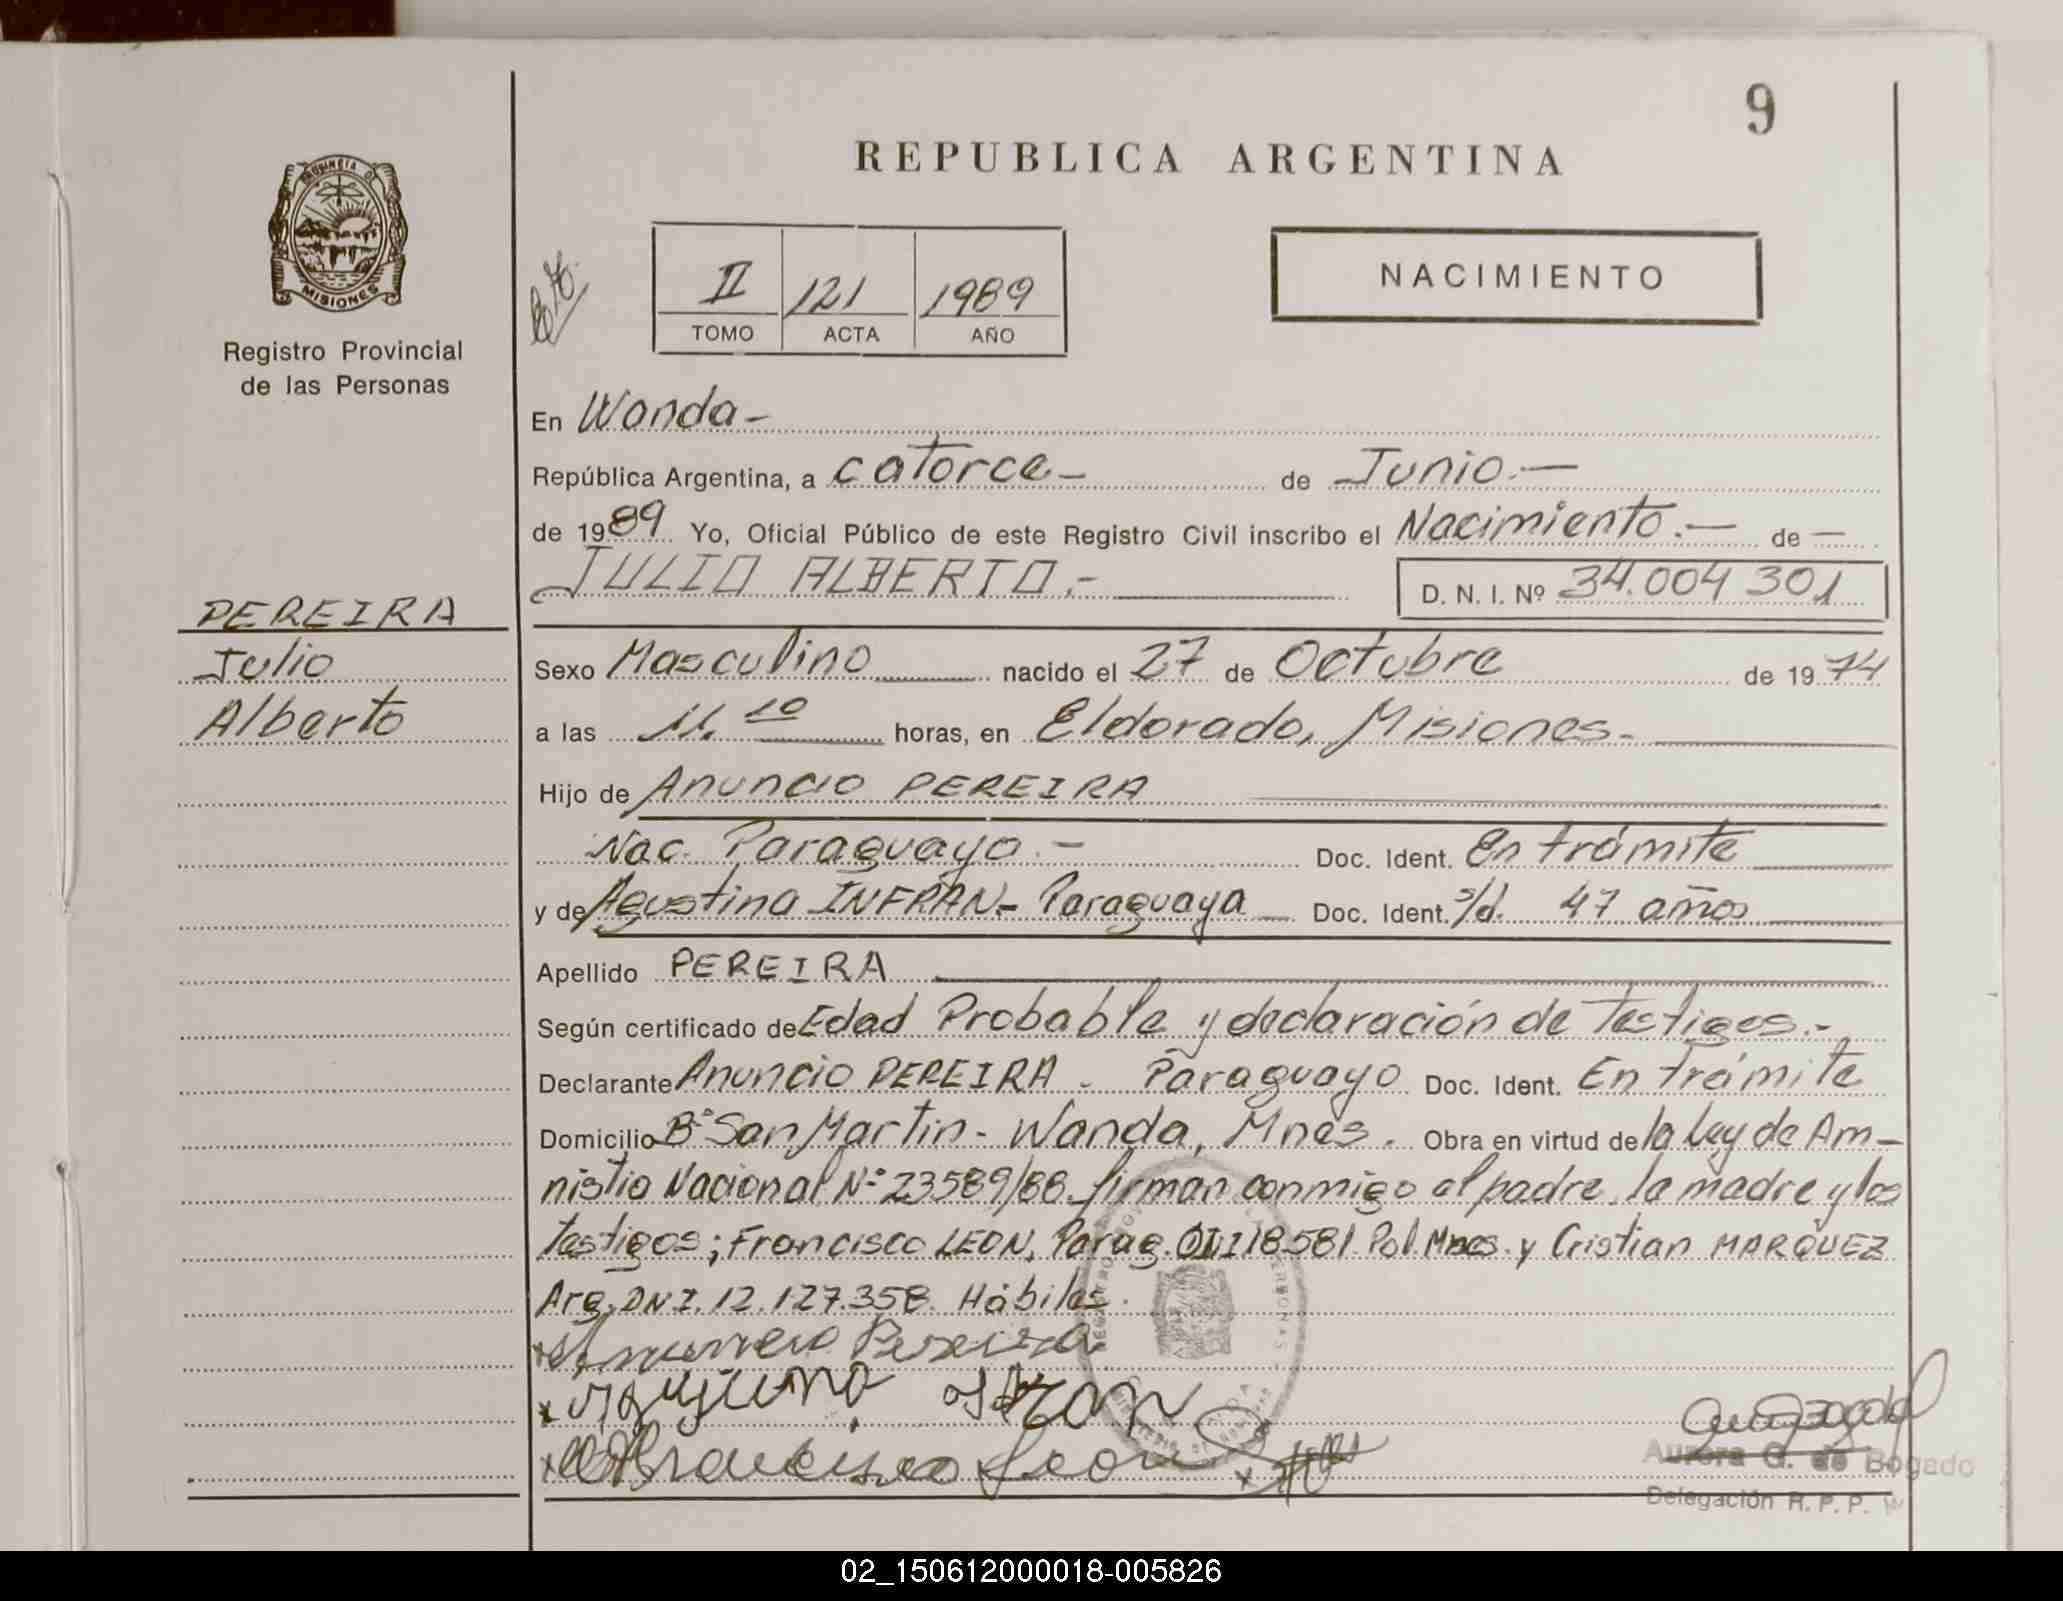 9
REPUBLICA ARGENTINA
PROVINCIA DE
MISIONES
Registro Provincial
de las Personas
II 121 1989
TOMO ACTA AÑO
NACIMIENTO
En Wanda-
República Argentina, a catorce- de Junio.-
de 1989 Yo, Oficial Público de este Registro Civil inscribo el Nacimiento.- de -
JULIO ALBERTO.- D. N. I. Nº 34.004 301
PEREIRA
Julio
Alberto
Sexo Masculino nacido el 27 de Octubre de 1974
a las 11.10 horas, en Eldorado, Misiones.
Hijo de Anuncio PEREIRA
Nac. Paraguayo.- Doc. Ident. En trámite
y de Agustina INFRAN.- Paraguaya Doc. Ident. s/d. 47 años
Apellido PEREIRA
Según certificado de Edad Probable y declaración de Testigos.-
Declarante Anuncio PEREIRA. Paraguayo Doc. Ident. En trámite
Domicilio Bº San Martin- Wanda, Mnes. Obra en virtud de la Ley de Am-
nistia Nacional Nº 23589/88. firman conmigo el padre, la madre y los
testigos; Francisco LEON, Parag. 118581 Pol Mnes. y Cristian MARQUEZ
Arg. DNI. 12.127.358. Hábiles.
Pereira
Francisco Leon
Aurora G. de Bogado
Delegación R. P. P.
02_150612000018-005826